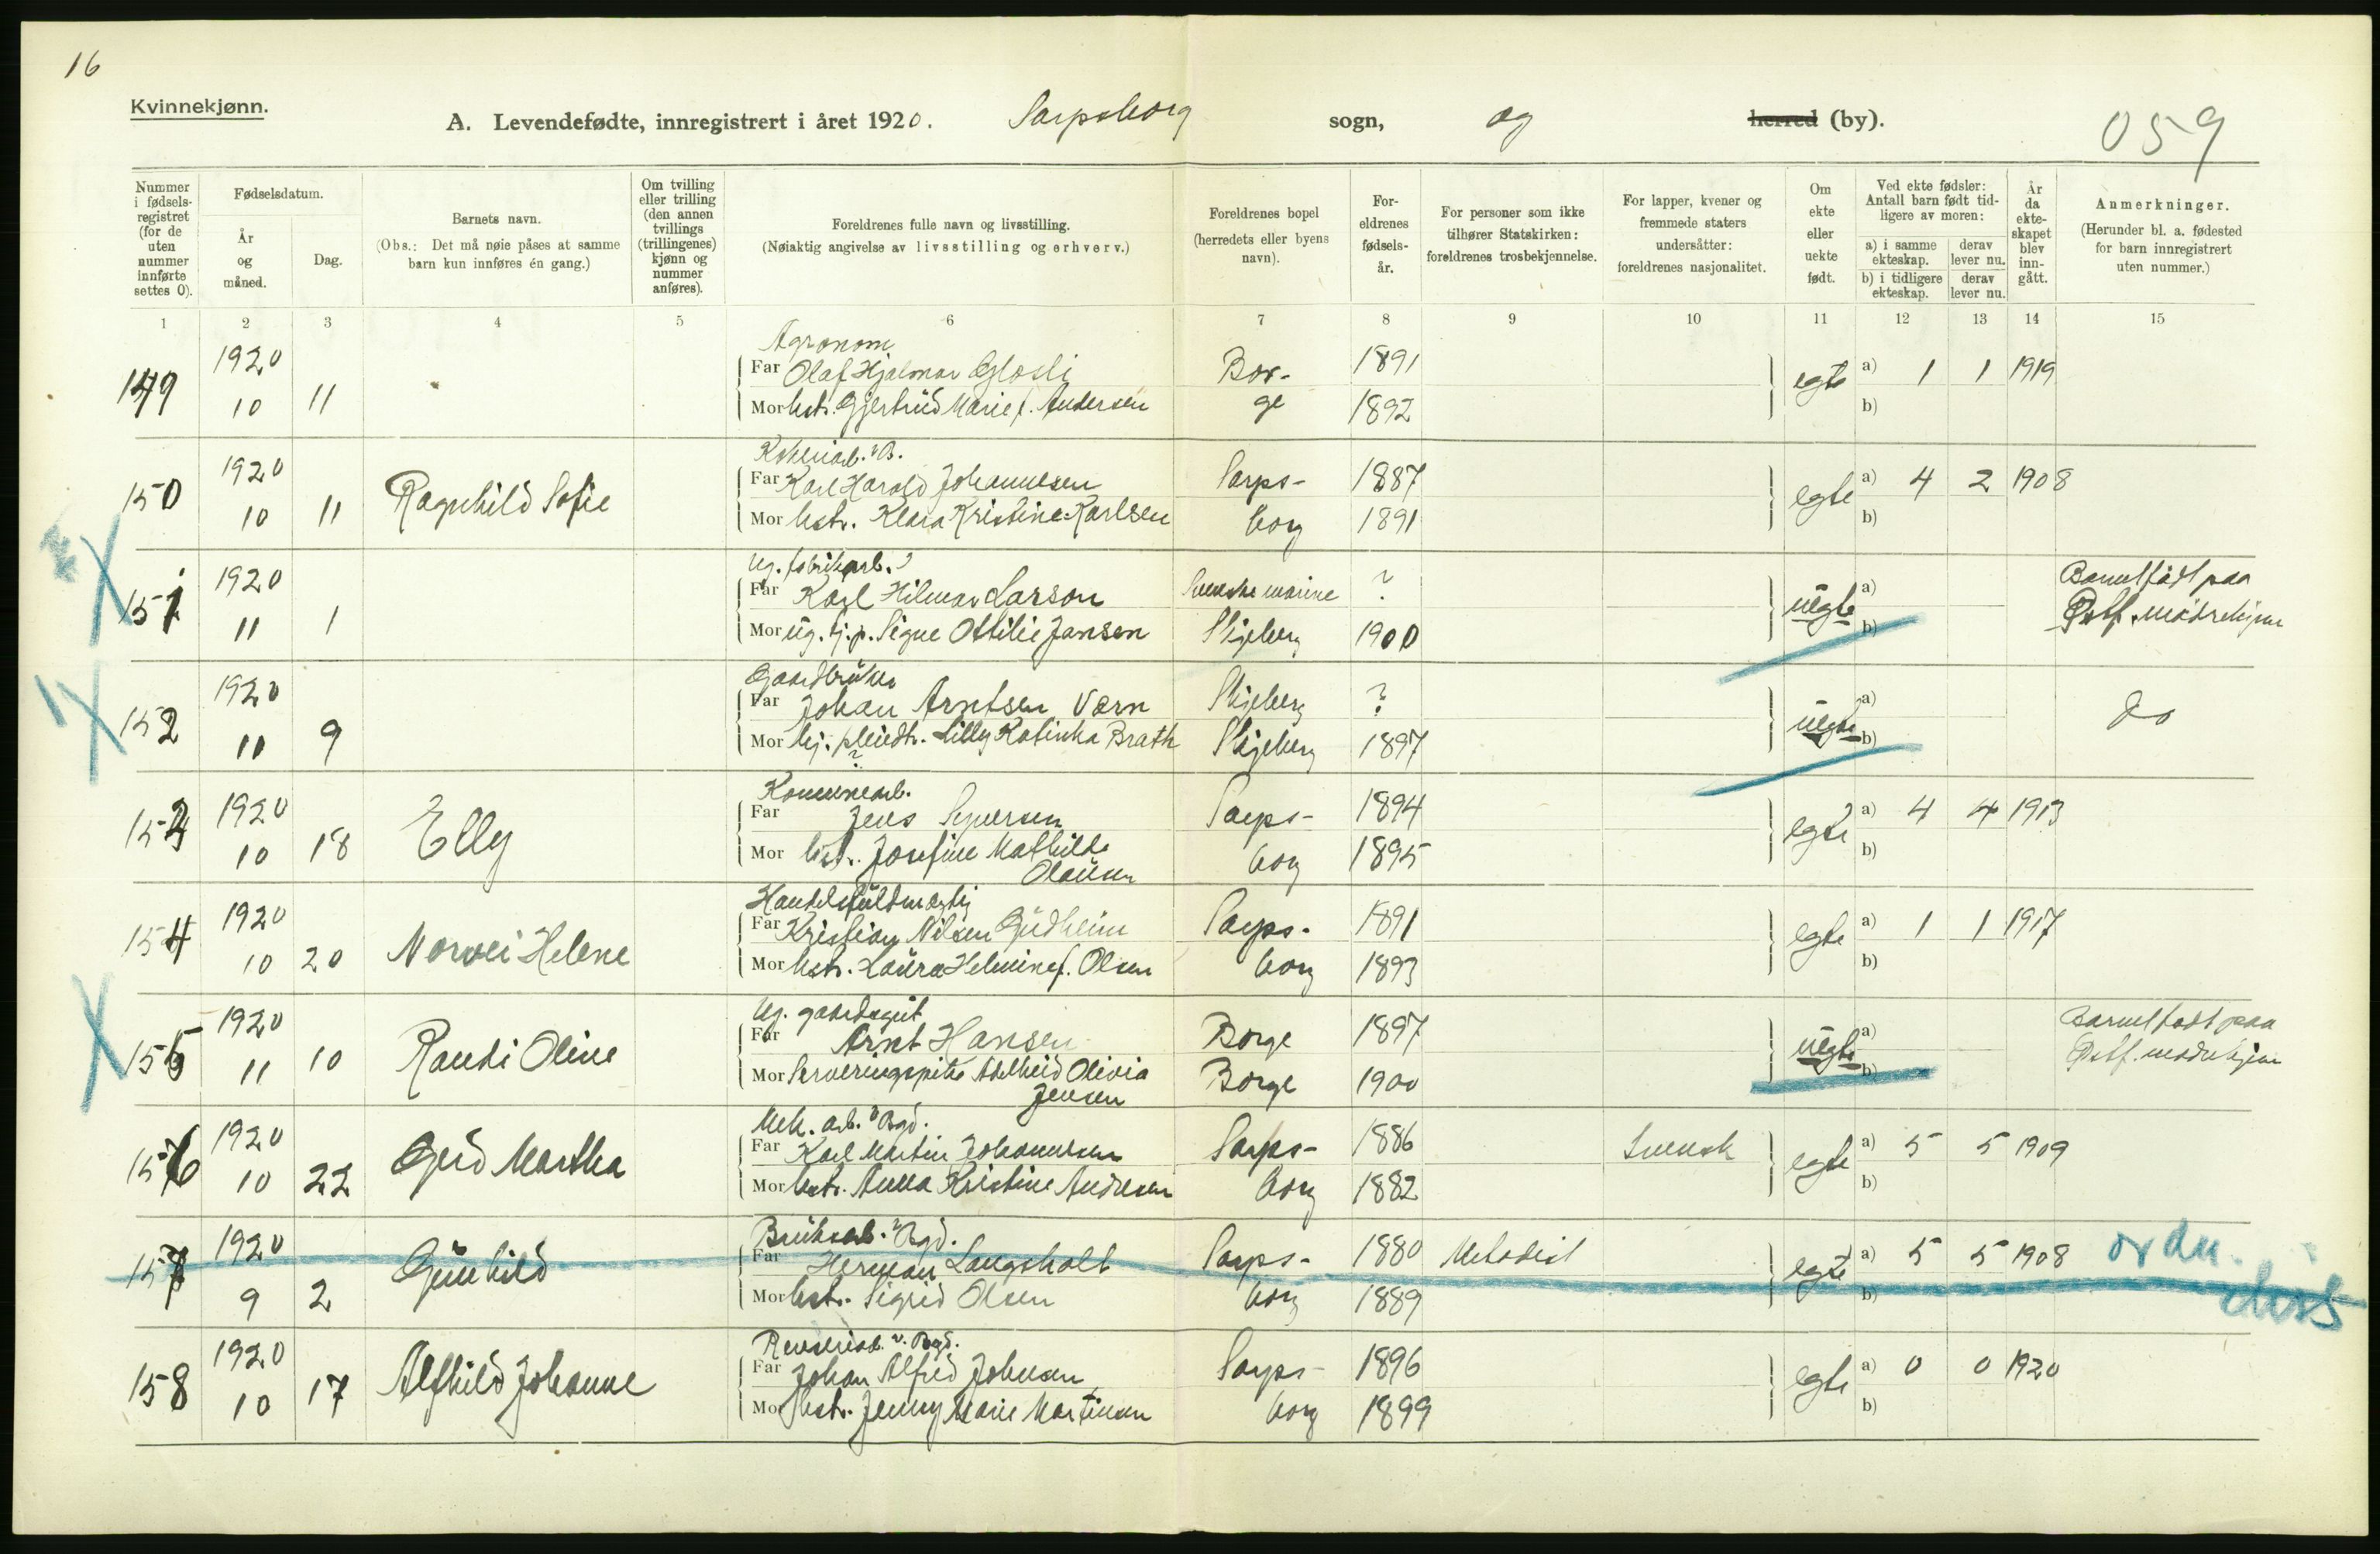 16
Kvinnekjønn.
A. Levendefødte, innregistrert i året 1920. Sarpsborg sogn, og herred (by). 059
Nummer i fødselsregistret (for de uten nummer innførte settes 0).
Fødselsdatum.
År og måned.
Dag.
Barnets navn.
(Obs.: Det må nøie påses at samme barn kun innføres én gang.)
Om tvilling eller trilling (den annen tvillings (trillingenes) kjønn og nummer anføres).
Foreldrenes fulle navn og livsstilling.
(Nøiaktig angivelse av livsstilling og erhverv.)
Foreldrenes bopel (herredets eller byens navn).
Foreldrenes fødselsår.
For personer som ikke tilhører Statskirken: foreldrenes trosbekjennelse.
For lapper, kvener og fremmede staters undersåtter: foreldrenes nasjonalitet.
Om ekte eller uekte født.
Ved ekte fødsler: Antall barn født tidligere av moren:
a) i samme ekteskap.
derav lever nu.
b) i tidligere ekteskap.
derav lever nu.
År da ekteskapet blev inngått.
Anmerkninger.
(Herunder bl. a. fødested for barn innregistrert uten nummer.)
1 2 3 4 5 6 7 8 9 10 11 12 13 14 15
Agronom
149 1920 Far Olaf Hjalmar Glosli Bor- 1891 egte a) 1 1 1919
10 11 Mor hstr. Gjertrud Marie f. Andersen ge 1892 b)
150 1920 Ragnhild Sofie Far Karl Harald Johannesen Sarps- 1887 egte a) 4 2 1908
10 11 Mor hstr. Klara Kristine Karlsen borg 1891 b)
Ug. fabrikarb.?
151 1920 Far Karl Hilmar Larson Svenske marine ? uegte a) Barnet født paa
11 1 Mor ug. tj.p. Signe Ottilie Jansen Skjeberg 1900 b) Østf. mødrehjem
Gaardbruker
152 1920 Far Johan Arntsen Værn Skjeberg ? uegte a) do
11 9 Mor Lilly Katinka Brath Skjeberg 1897 b)
?
Kommunearb.
153 1920 Elly Far Jens Syversen Sarps- 1894 egte a) 4 4 1913
10 18 Mor hstr. Josefine Mathilde borg 1895 b)
Olausen
Handelsfuldmægtig
154 1920 Norvei Helene Far Kristian Nilsen Gudheim Sarps- 1891 egte a) 1 1 1917
10 20 Mor hstr. Laura Helmine f. Olsen borg 1893 b)
Ug. gaardsgut
155 1920 Randi Oline Far Arnt Hansen Borge 1897 uegte a) Barnet født paa
11 10 Mor Serveringspike Adelheid Olivia Borge 1900 b) Østf. mødrehjem
Jensen
Mek. arb. v Bgd.
156 1920 Gerd Martha Far Karl Martin Johannesen Sarps- 1886 Svensk egte a) 5 5 1909
10 22 Mor hstr. Anna Kristine Andresen borg 1882 b)
Bruksarb. v Bgd.
157 1920 Gunhild Far Herman Langsholt Sarps- 1880 Metodist egte a) 5 5 1908 ordn.
9 2 Mor hstr. Sigrid Olsen borg 1889 b) diss
Renseriarb. v. Bgd.
158 1920 Alfhild Johanne Far Johan Alfred Johnsen Sarps- 1896 egte a) 0 0 1920
10 17 Mor hstr. Jenny Marie Martinsen borg 1899 b)